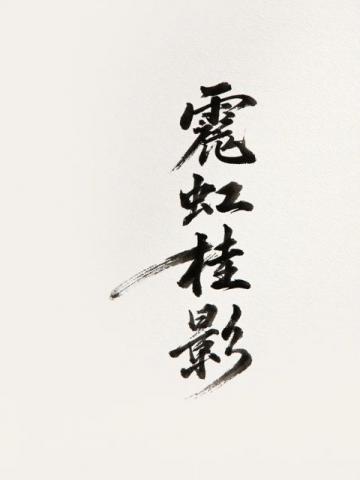 霓虹桂影